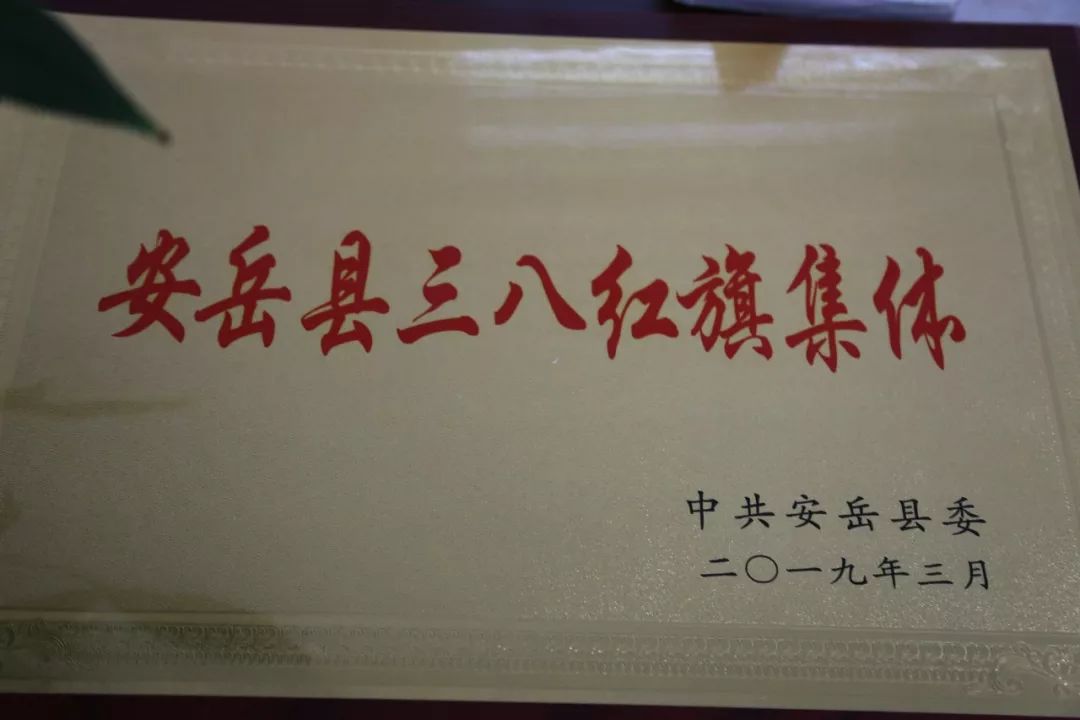 安岳县三八红旗集体
中共安岳县委
二〇一九年三月